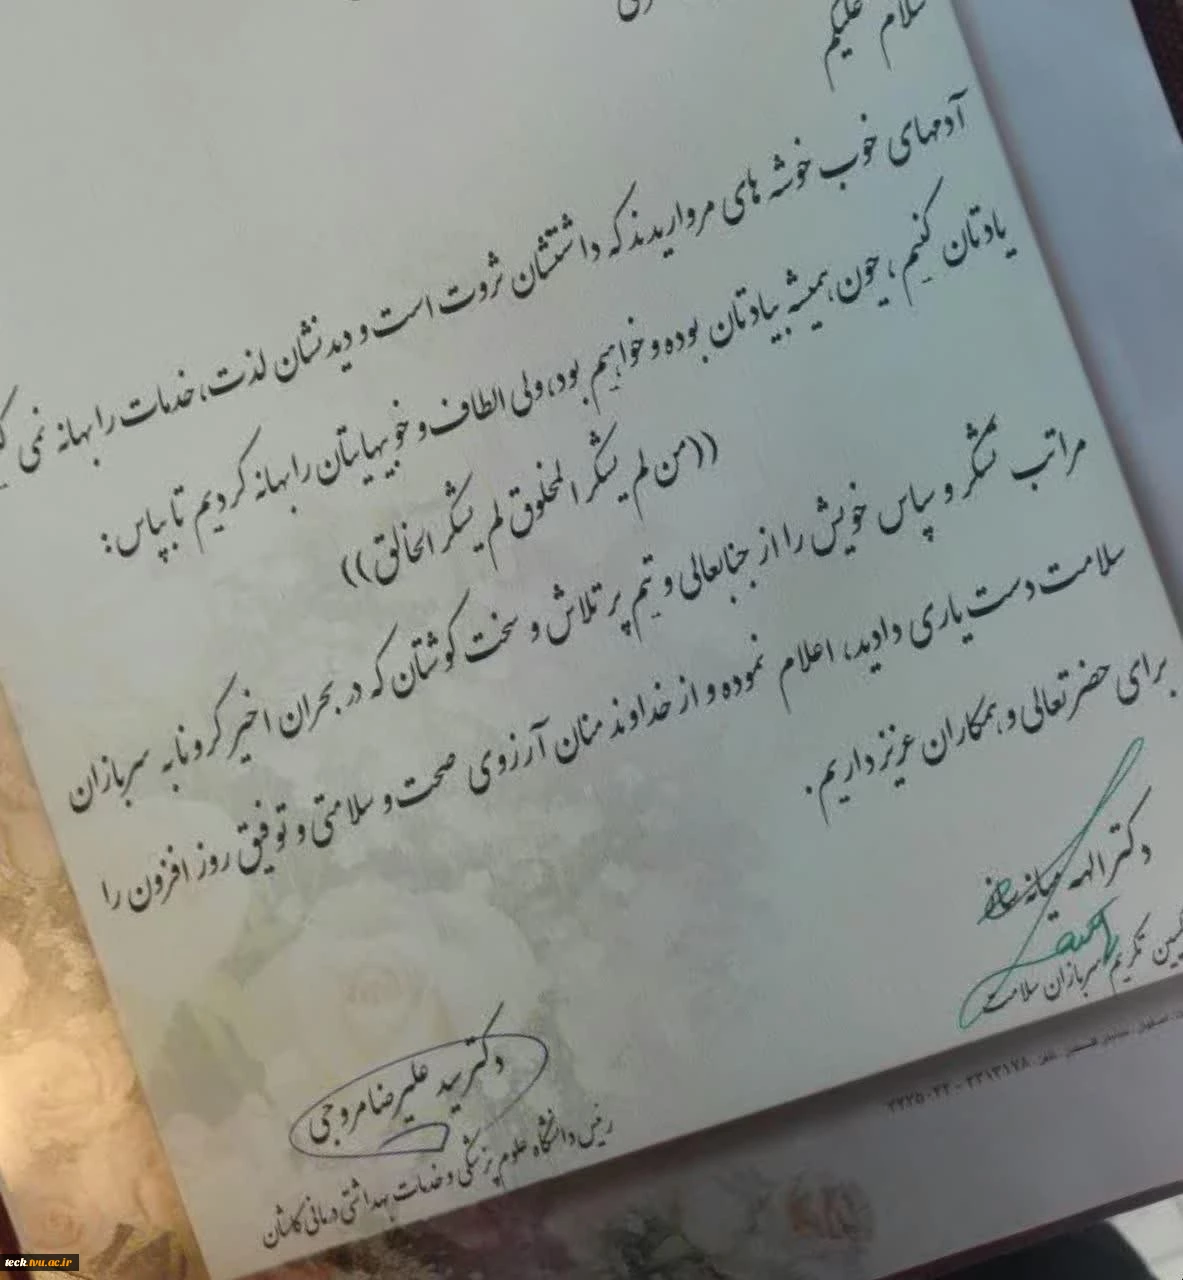 سلام علیکم
آدمهای خوب خوشه های مرواریدند که داشتنشان ثروت است و دیدنشان لذت، خدمات را بهانه نمی
یادتان کنیم، چون همیشه بیادتان بوده و خواهیم بود، ولی الطاف و خوبیهایتان را بهانه کردیم تا بپاس:
((من لم یشکر المخلوق لم یشکر الخالق))
مراتب تشکر و سپاس خویش را از جنابعالی و تیم پر تلاش و سخت کوشتان که در بحران اخیر کرونا به سربازان
سلامت دست یاری دادید، اعلام نموده و از خداوند منان آرزوی صحت و سلامتی و توفیق روز افزون را
برای حضرتعالی و همکاران عزیز داریم.
دکتر الهه
تکریم سربازان سلامت
دکتر سید علیرضا مروجی
رئیس دانشگاه علوم پزشکی و خدمات بهداشتی درمانی کاشان
teck.tvu.ac.ir